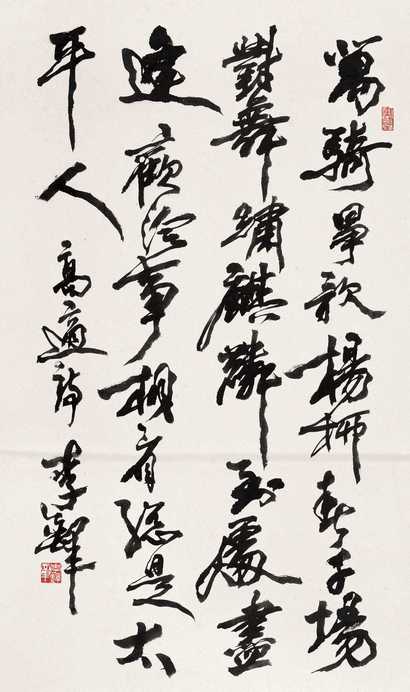 萬騎爭歌楊柳春千場
對舞繡麒麟到處盡
逢歡洽事相看總是太
平人 高適詩 李鐸